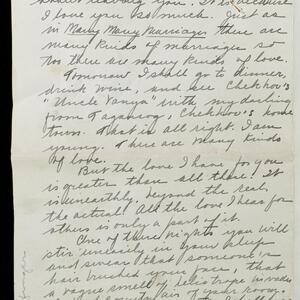 about leaving you. It is because
I love you so much. Just as
in Many Many Marriages there are
many kinds of marriages so
too there are many kinds of love.
Tomorrow I shall go to dinner,
drink wine, and see Chekhov's
"Uncle Vanya" with my darling
from Taganrog, Chekhov's home
town. That is all right. I am
young. There are many kinds
of love.
But the love I have for you
is greater than all these! It
is unearthly, beyond the real,
the actual! All the love I bear for
others is only a part of it.
One of these nights you will
stir uneasily in your sleep
and swear that someone's
hair brushed your face, that
a vague smell of heliotrope invades
the country air of your room,